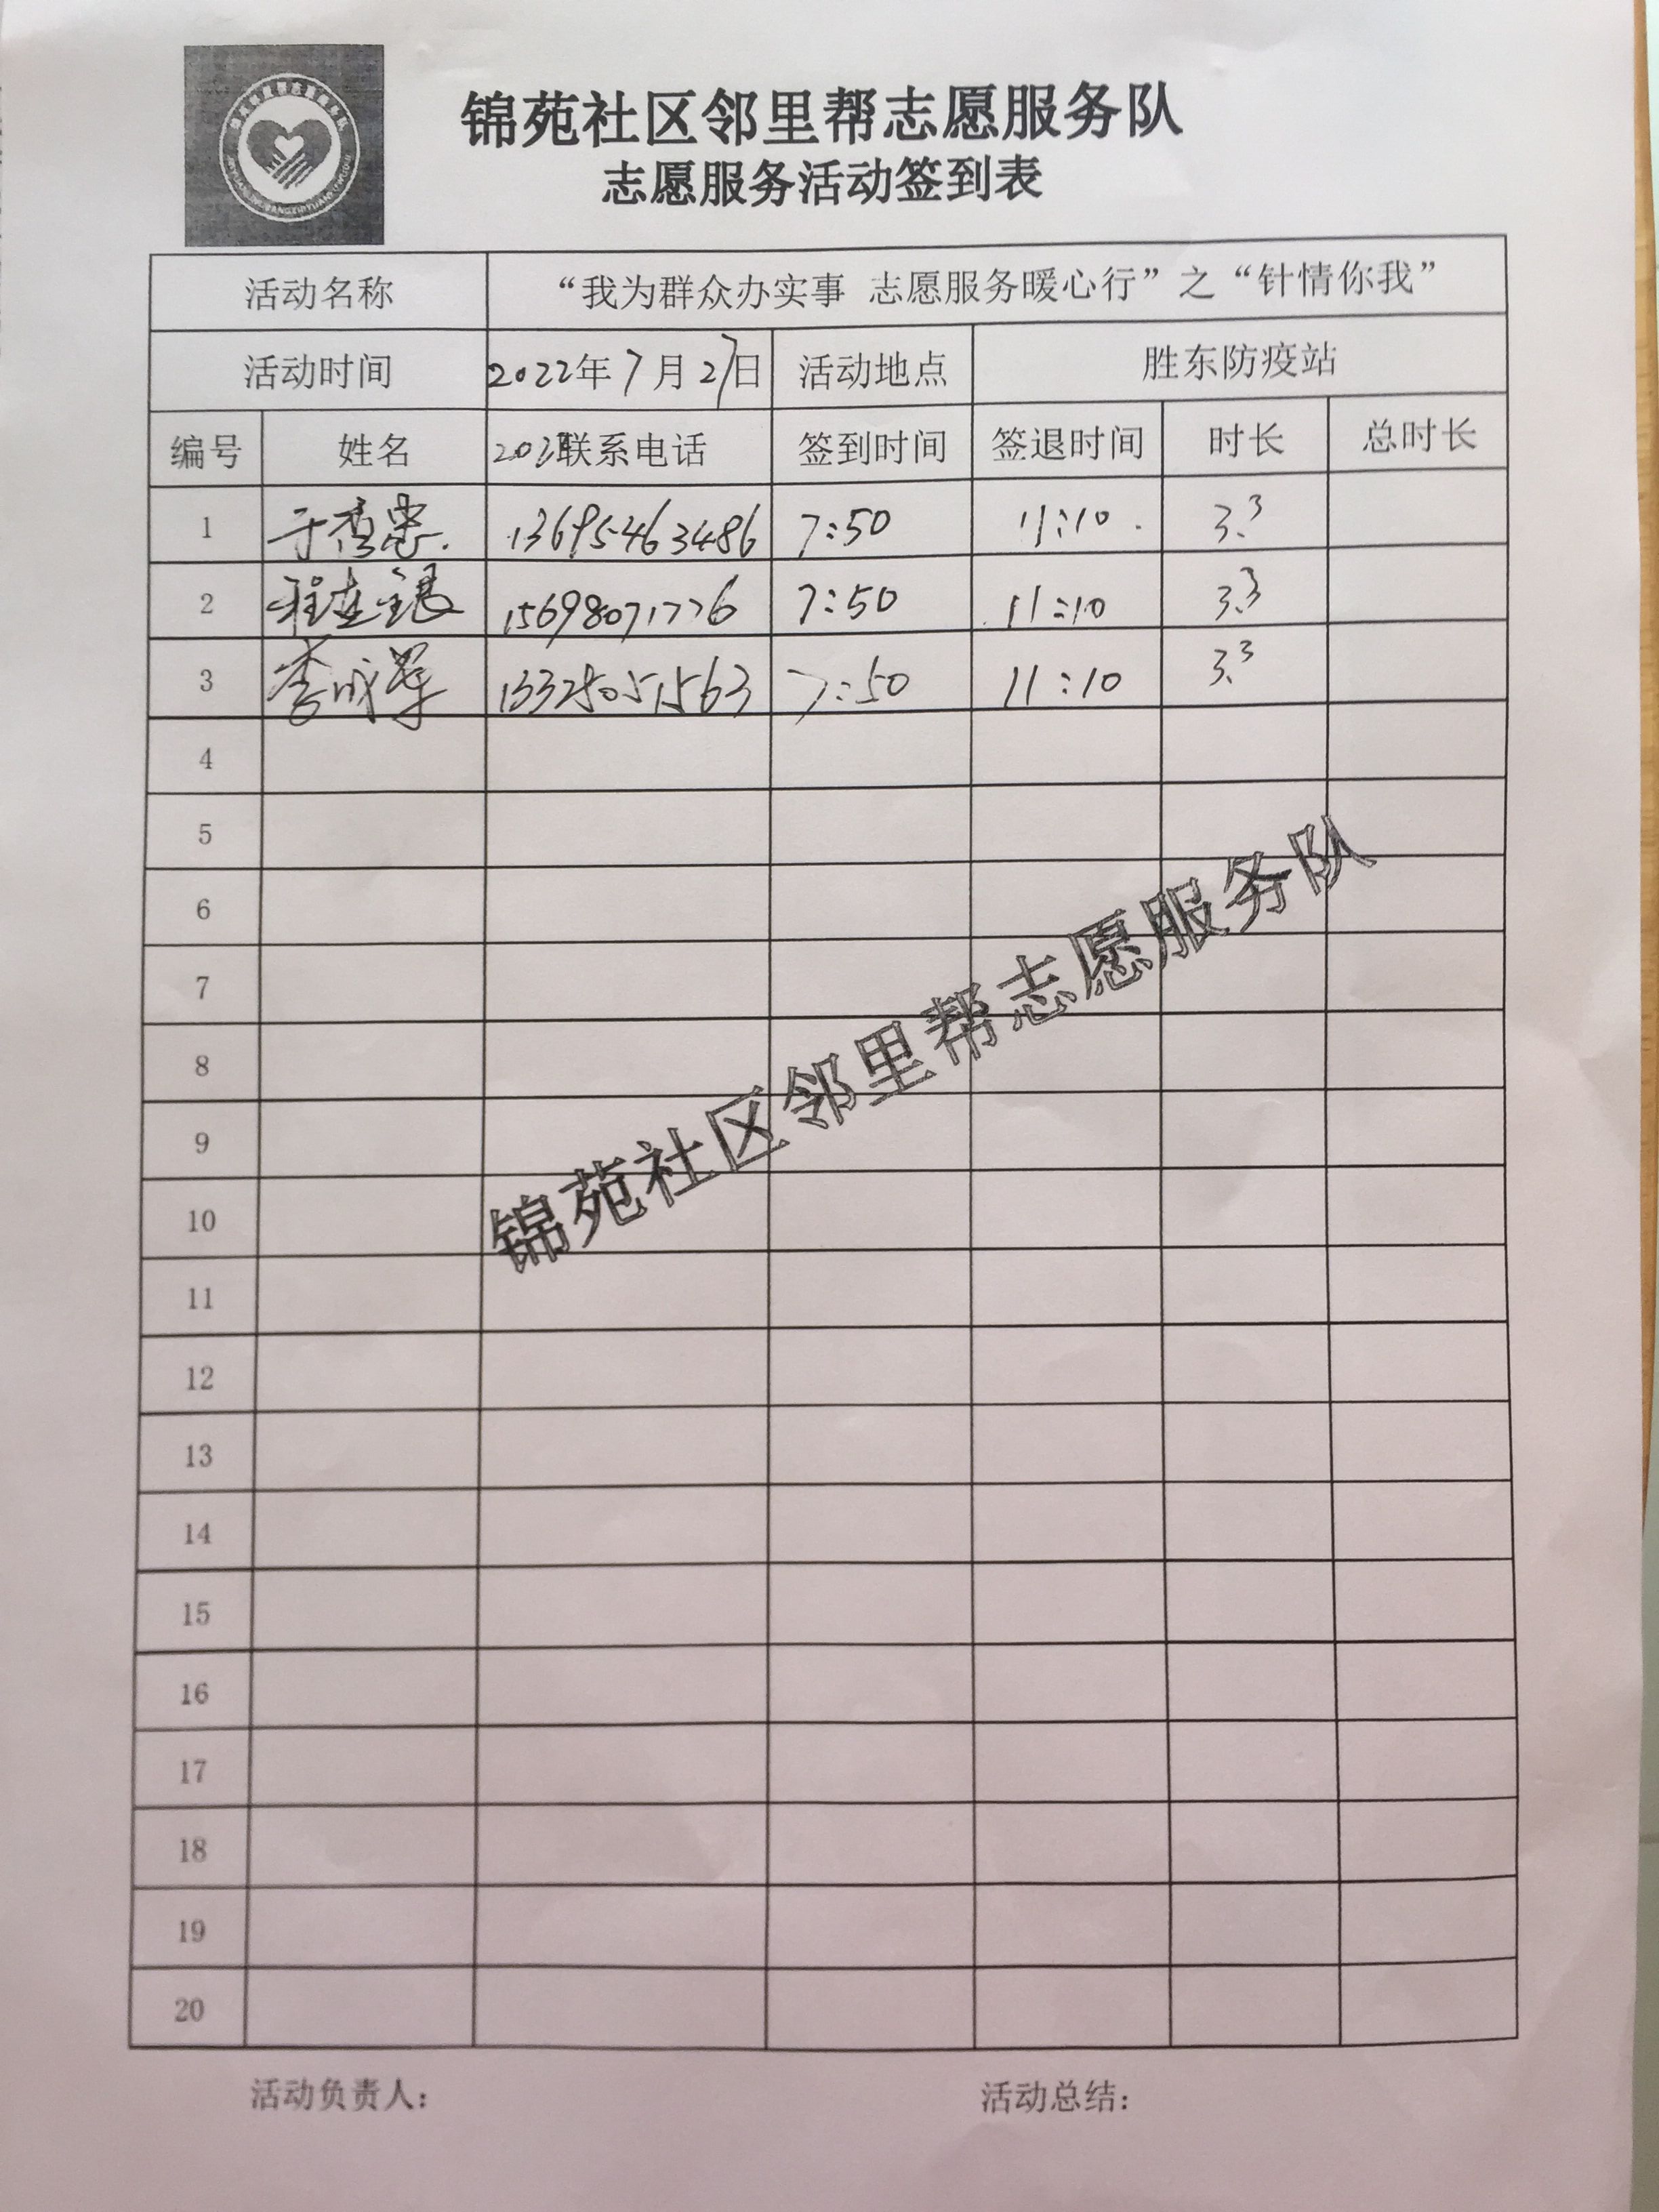 锦苑社区邻里帮志愿服务队
志愿服务活动签到表
活动名称 “我为群众办实事 志愿服务暖心行”之“针情你我”
活动时间 2022年7月27日 活动地点 胜东防疫站
编号 姓名 联系电话 签到时间 签退时间 时长 总时长
1 于杏忠 13695463486 7:50 11:10 3.3
2 15698071776 7:50 11:10 3.3
3 李成军 13325051563 7:50 11:10 3.3
4
5
6
7
8
9
10
11
12
13
14
15
16
17
18
19
20
锦苑社区邻里帮志愿服务队
活动负责人： 活动总结：